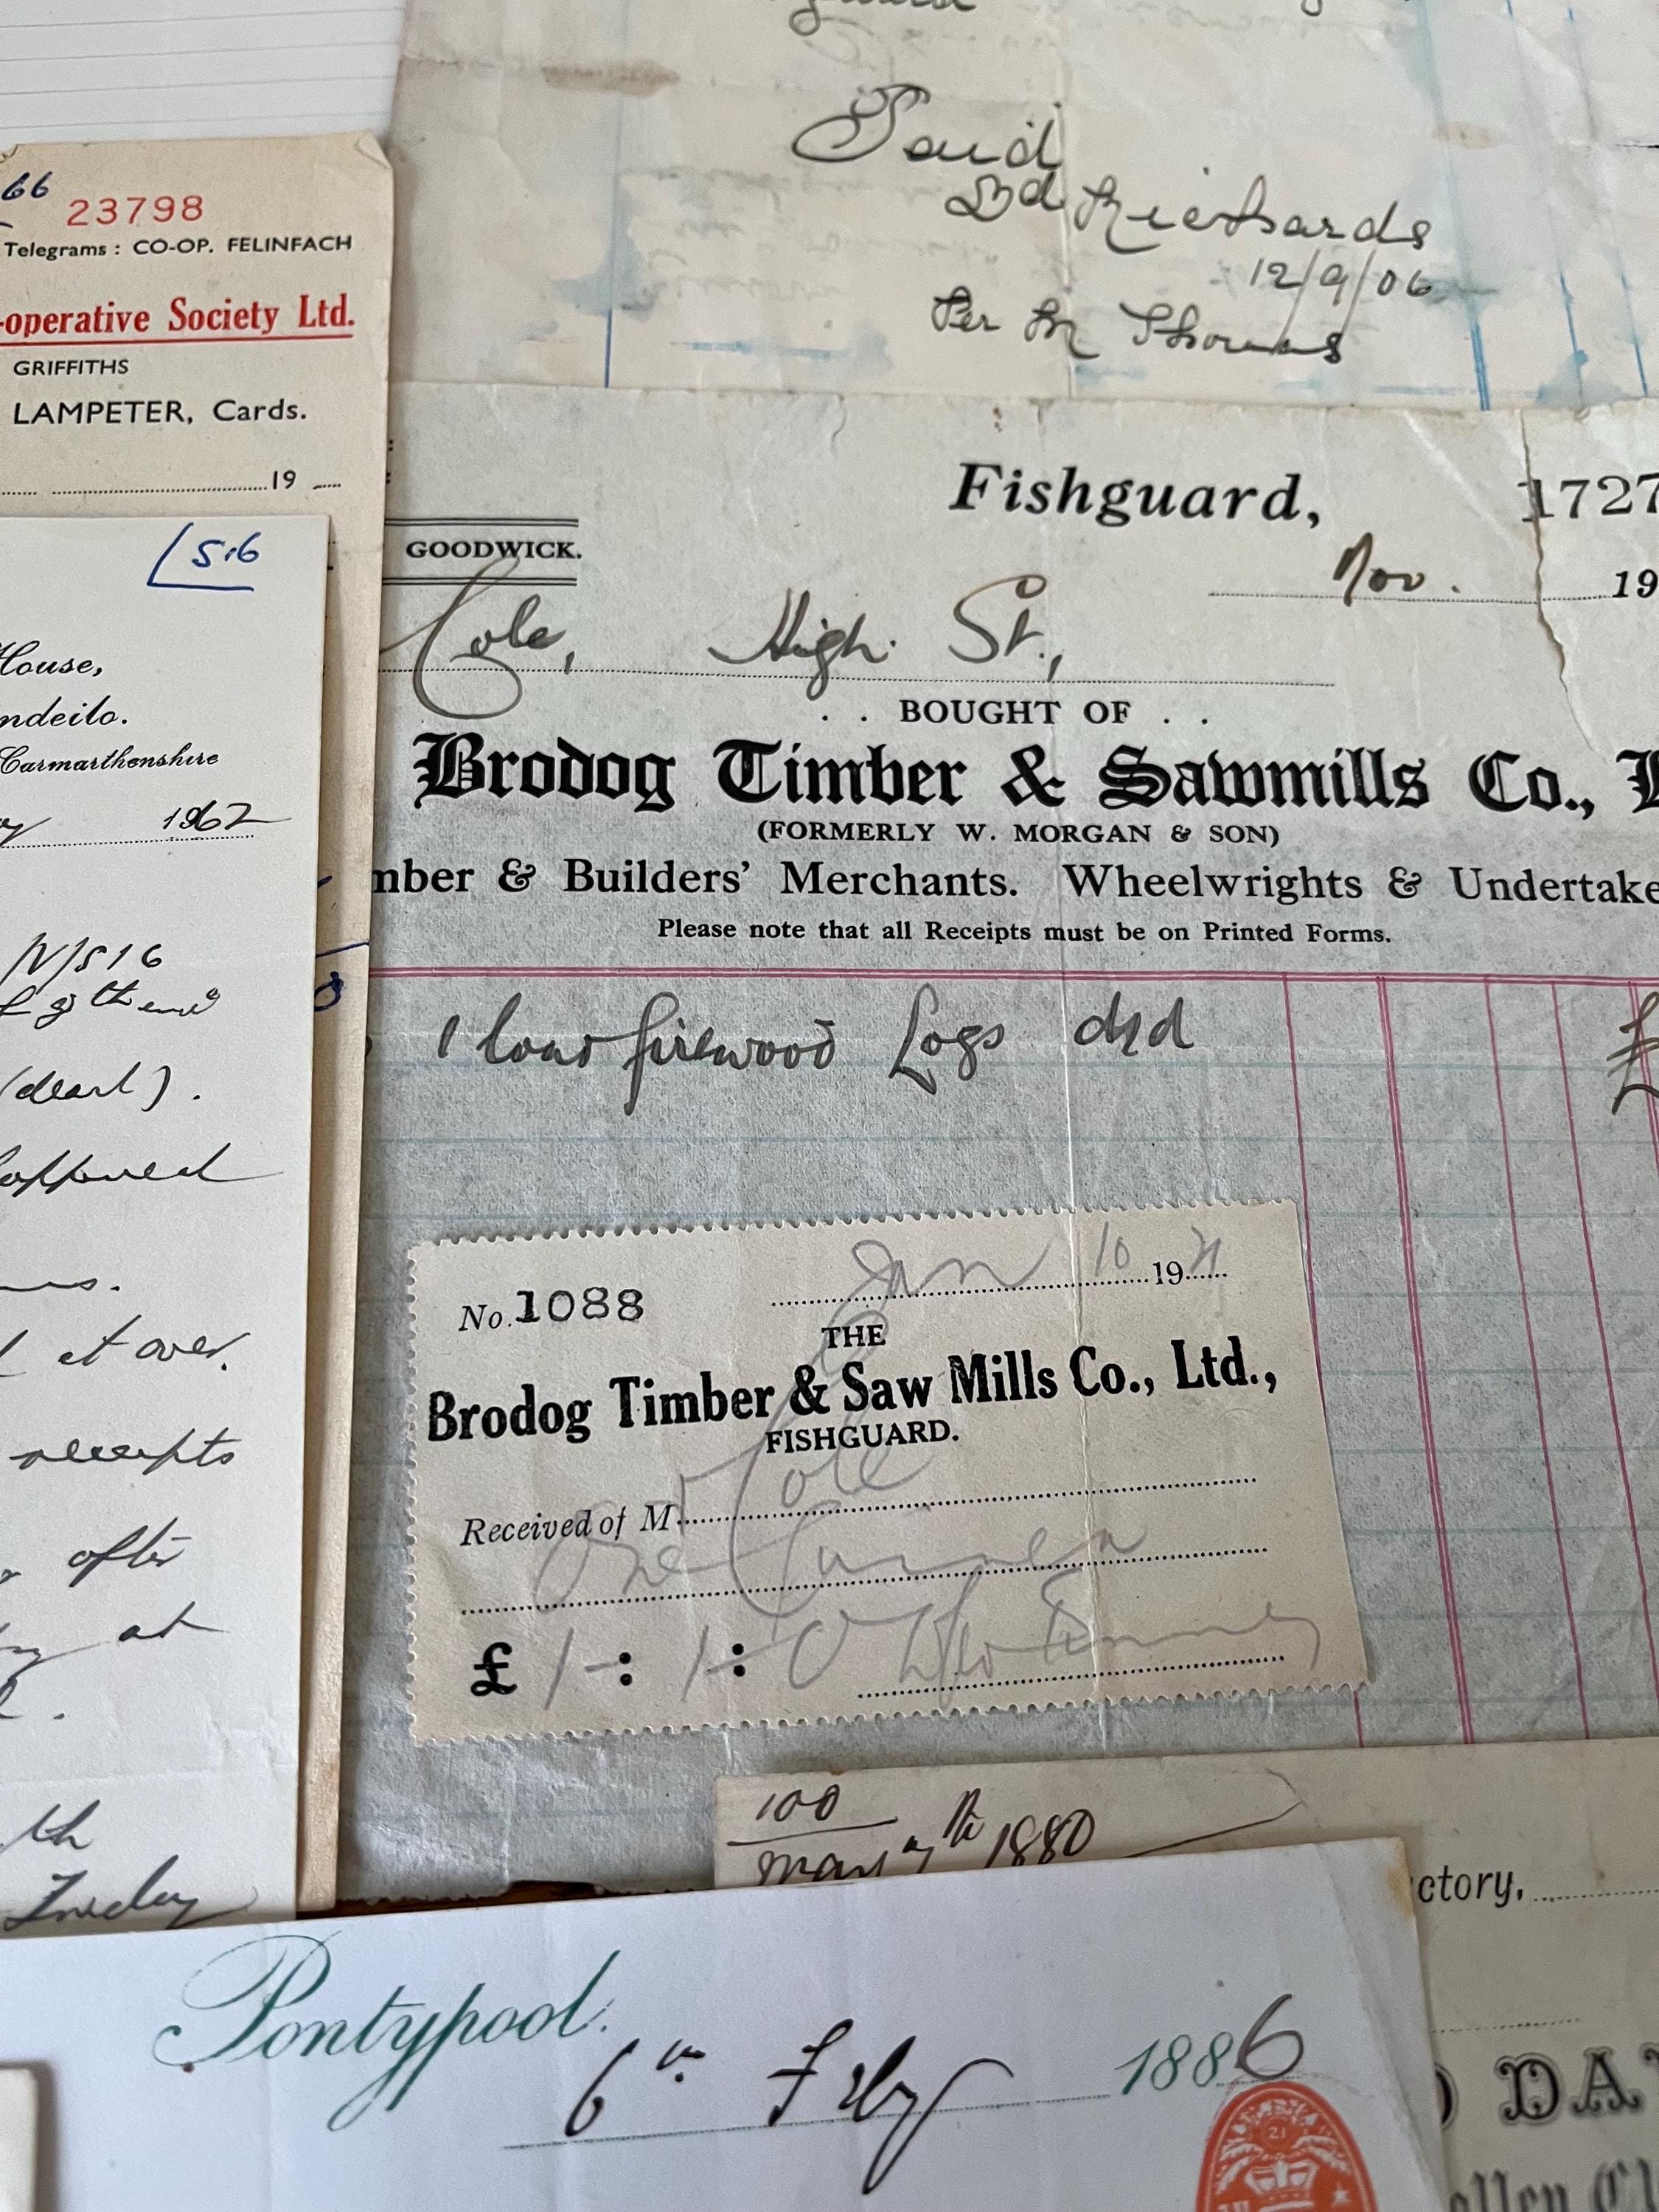 Paid
Dd Richards
12/9/06
Per M Thomas
66
23798
Telegrams : CO-OP. FELINFACH
-operative Society Ltd.
GRIFFITHS
LAMPETER, Cards.
19
516
House,
ndeilo.
Carmarthenshire
1962
N/516
(dearl).
et over.
receipts
after
at
th
Fishguard,
1727
GOODWICK.
Nov. 19
Cole, High St.,
. . BOUGHT OF . .
Brodog Timber & Sawmills Co.,
(FORMERLY W. MORGAN & SON)
mber & Builders' Merchants. Wheelwrights & Undertake
Please note that all Receipts must be on Printed Forms.
1 load firewood Logs dld £
Jan 10 19
No. 1088
THE
Brodog Timber & Saw Mills Co., Ltd.,
FISHGUARD.
Received of M Cole
One Guinea
£ 1 : 1 : 0
100
May 7th 1880
ctory,
Pontypool.
6th Feby 1886
21
DAV
alley